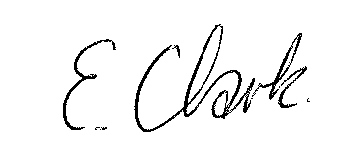 E. Clark.